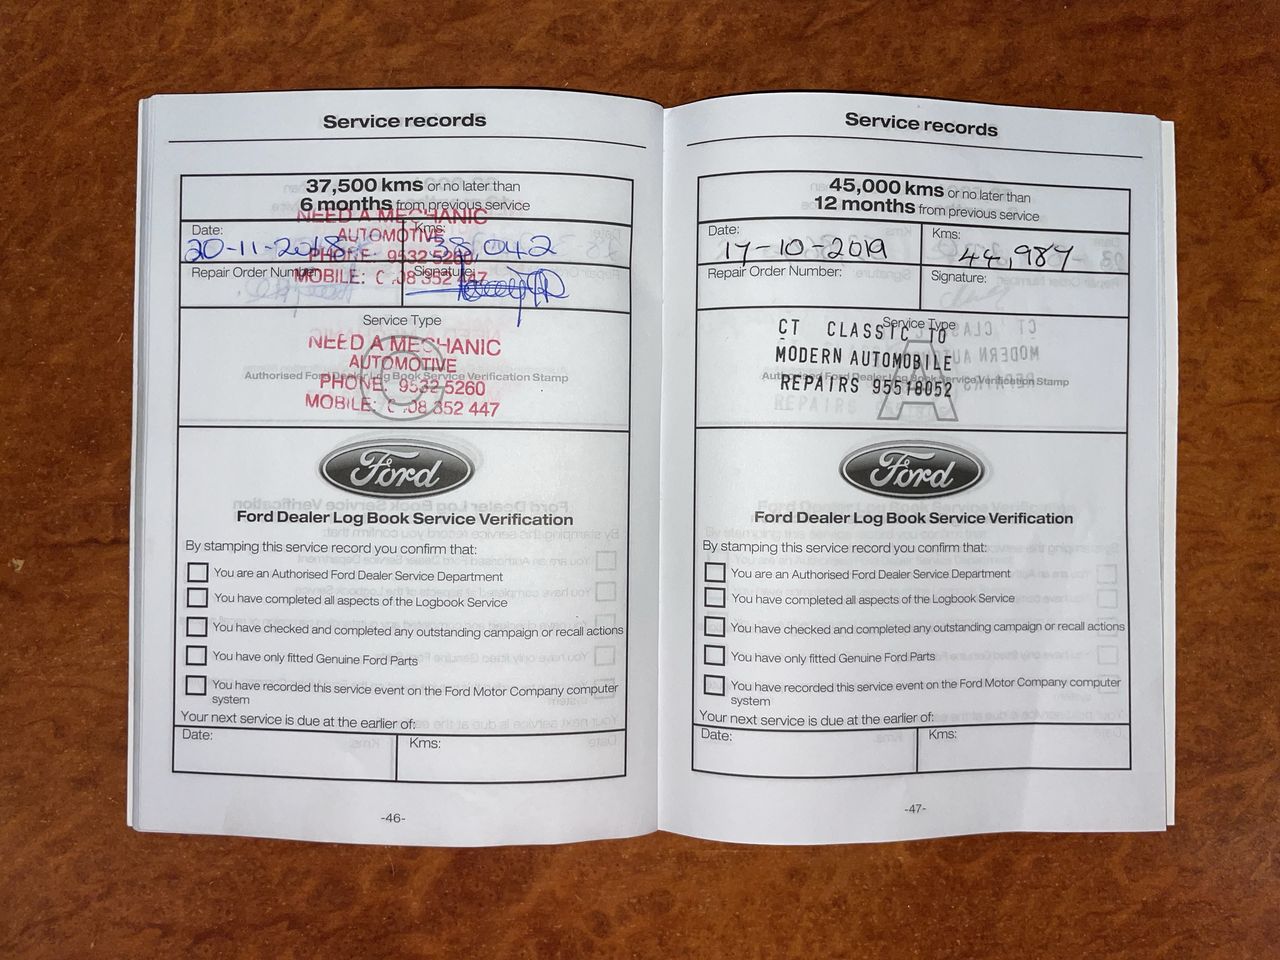 Service records
37,500 kms or no later than
6 months from previous service
NEED A MECHANIC
AUTOMOTIVE
PHONE: 9532 5260
MOBILE: 08 352 447
Date: Kms:
20-11-2018 38,042
Repair Order Number: Signature:
Service Type
C
NEED A MECHANIC
AUTOMOTIVE
Authorised Ford Dealer Log Book Service Verification Stamp
PHONE: 9532 5260
MOBILE: 08 352 447
Ford
Ford Dealer Log Book Service Verification
By stamping this service record you confirm that:
You are an Authorised Ford Dealer Service Department
You have completed all aspects of the Logbook Service
You have checked and completed any outstanding campaign or recall actions
You have only fitted Genuine Ford Parts
You have recorded this service event on the Ford Motor Company computer
system
Your next service is due at the earlier of:
Date: Kms:
-46-
Service records
45,000 kms or no later than
12 months from previous service
Date: Kms:
17-10-2019 44,984
Repair Order Number: Signature:
Service Type
A
CT CLASSIC TO
MODERN AUTOMOBILE
Authorised Ford Dealer Log Book Service Verification Stamp
REPAIRS 95518052
Ford
Ford Dealer Log Book Service Verification
By stamping this service record you confirm that:
You are an Authorised Ford Dealer Service Department
You have completed all aspects of the Logbook Service
You have checked and completed any outstanding campaign or recall actions
You have only fitted Genuine Ford Parts
You have recorded this service event on the Ford Motor Company computer
system
Your next service is due at the earlier of:
Date: Kms:
-47-